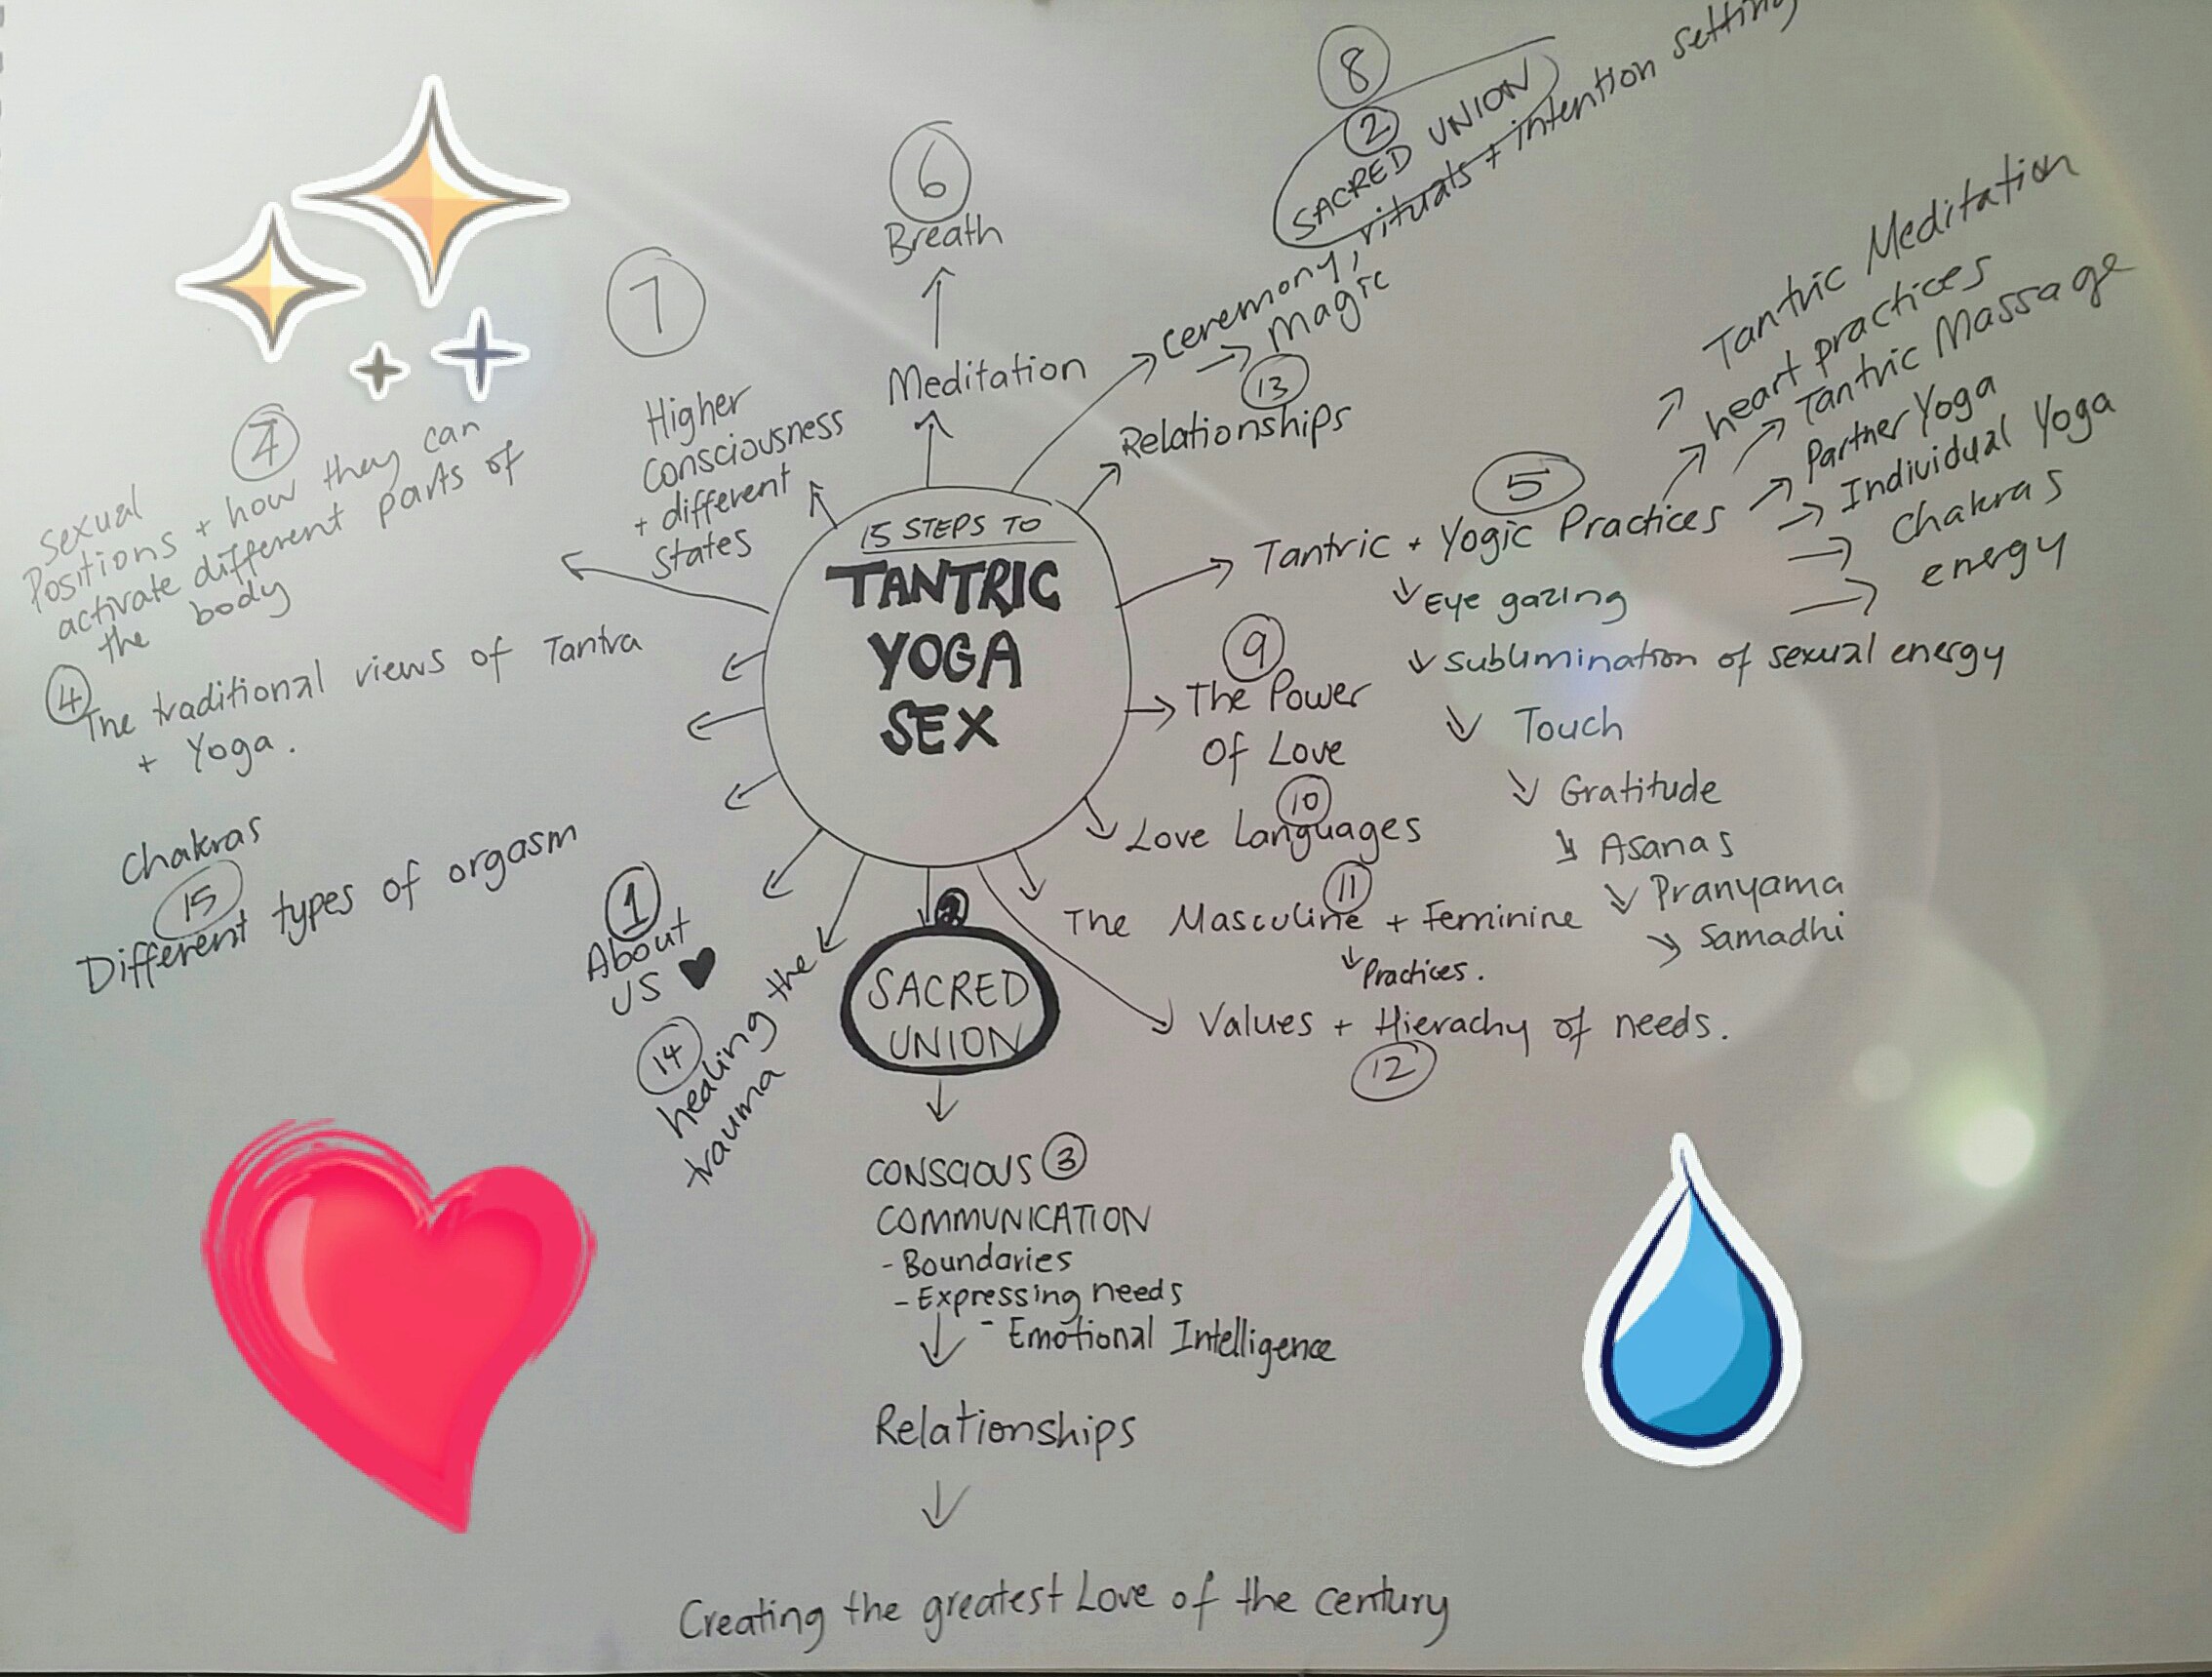 15 STEPS TO
TANTRIC
YOGA
SEX
6
Breath
Meditation
8
2
SACRED UNION
ceremony, rituals + intention setting
magic
13
Relationships
5
Tantric + Yogic Practices
Tantric Meditation
heart practices
Tantric Massage
Partner Yoga
Individual Yoga
Chakras
energy
Eye gazing
Sublumination of sexual energy
Touch
Gratitude
Asanas
Pranyama
Samadhi
9
The Power
Of Love
10
Love Languages
11
The Masculine + Feminine
Practices.
Values + Hierachy of needs.
12
2
SACRED
UNION
CONSCIOUS 3
COMMUNICATION
- Boundaries
- Expressing needs
- Emotional Intelligence
Relationships
Creating the greatest Love of the century
14
healing the
trauma
1
About
US ♥
Chakras
15
Different types of orgasm
4
The traditional views of Tantra
+ Yoga.
7
Sexual
Positions + how they can
activate different parts of
the body
7
Higher
Consciousness
+ different
States